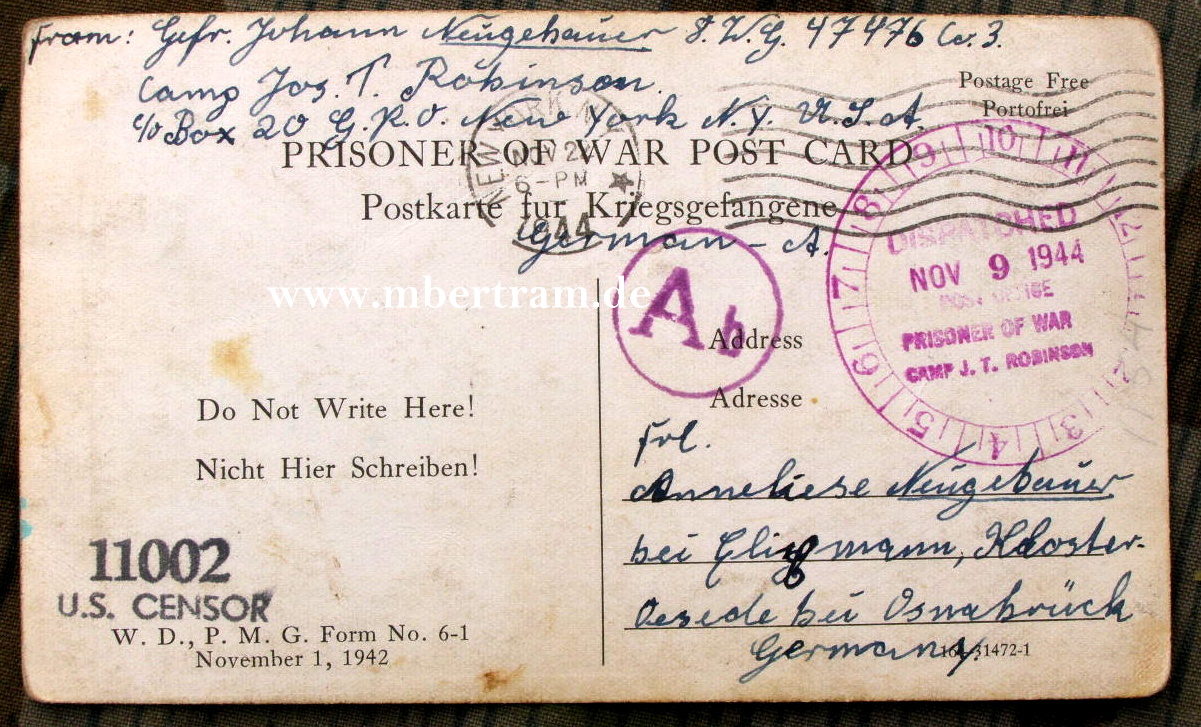 From: Gefr. Johann Neugebauer 8. W. G. 47476 Co. 3.
Camp Jos. T. Robinson.
c/o Box 20 G. P. O. New York N. Y. U. S. A.
Postage Free
Portofrei
PRISONER OF WAR POST CARD
Postkarte fur Kriegsgefangene
German - A.
NEW YORK
NOV 2
6-PM
1944
7 8 9 10 11
DISPATCHED
NOV 9 1944
POST OFFICE
PRISONER OF WAR
CAMP J. T. ROBINSON
6 5 4 3 2
www.mbertram.de
Ab
Address
Adresse
Do Not Write Here!
Nicht Hier Schreiben!
Frl.
Anneliese Neugebauer
bei Kloster-
Oesede bei Osnabrück
Germany.
11002
U.S. CENSOR
W. D., P. M. G. Form No. 6-1
November 1, 1942
16-31472-1